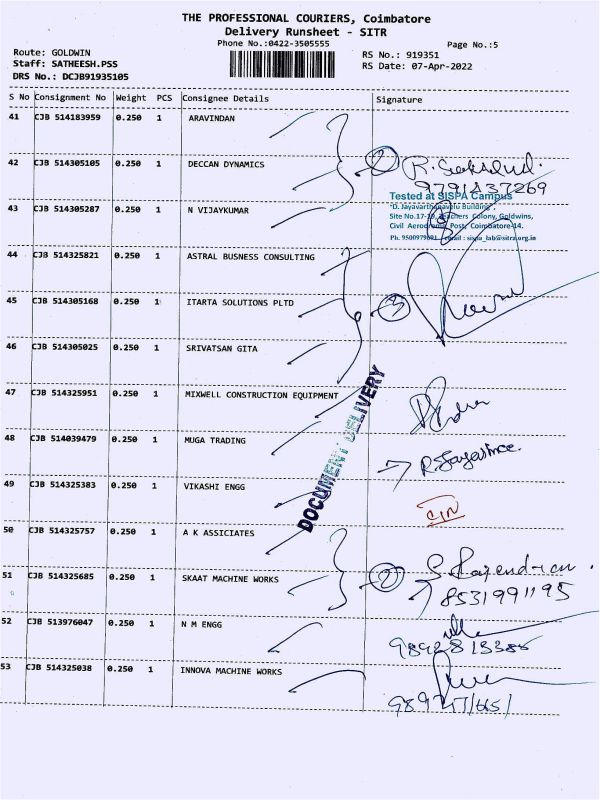 THE PROFESSIONAL COURIERS, Coimbatore
Delivery Runsheet - SITR
Phone No.:0422-3505555
Page No.:5
Route: GOLDWIN
Staff: SATHEESH.PSS
DRS No.: DCJB91935105
RS No.: 919351
RS Date: 07-Apr-2022
S No Consignment No Weight PCS Consignee Details Signature
41 CJB 514183959 0.250 1 ARAVINDAN
42 CJB 514305105 0.250 1 DECCAN DYNAMICS
9791437269
Tested at SISPA Campus
"D. Jayavarthanavelu Building"
43 CJB 514305287 0.250 1 N VIJAYKUMAR
Site No.17-19, Teachers Colony, Goldwins,
Civil Aerodrome Post, Coimbatore-14.
Ph. 9500979081 email : sispa_lab@sitra.org.in
44 CJB 514325821 0.250 1 ASTRAL BUSNESS CONSULTING
45 CJB 514305168 0.250 1 ITARTA SOLUTIONS PLTD
3
46 CJB 514305025 0.250 1 SRIVATSAN GITA
47 CJB 514325951 0.250 1 MIXWELL CONSTRUCTION EQUIPMENT
DOCUMENT DELIVERY
48 CJB 514039479 0.250 1 MUGA TRADING
49 CJB 514325383 0.250 1 VIKASHI ENGG
50 CJB 514325757 0.250 1 A K ASSICIATES
51 CJB 514325685 0.250 1 SKAAT MACHINE WORKS
2 S. Rajendran.
8531991195
52 CJB 513976047 0.250 1 N M ENGG
53 CJB 514325038 0.250 1 INNOVA MACHINE WORKS